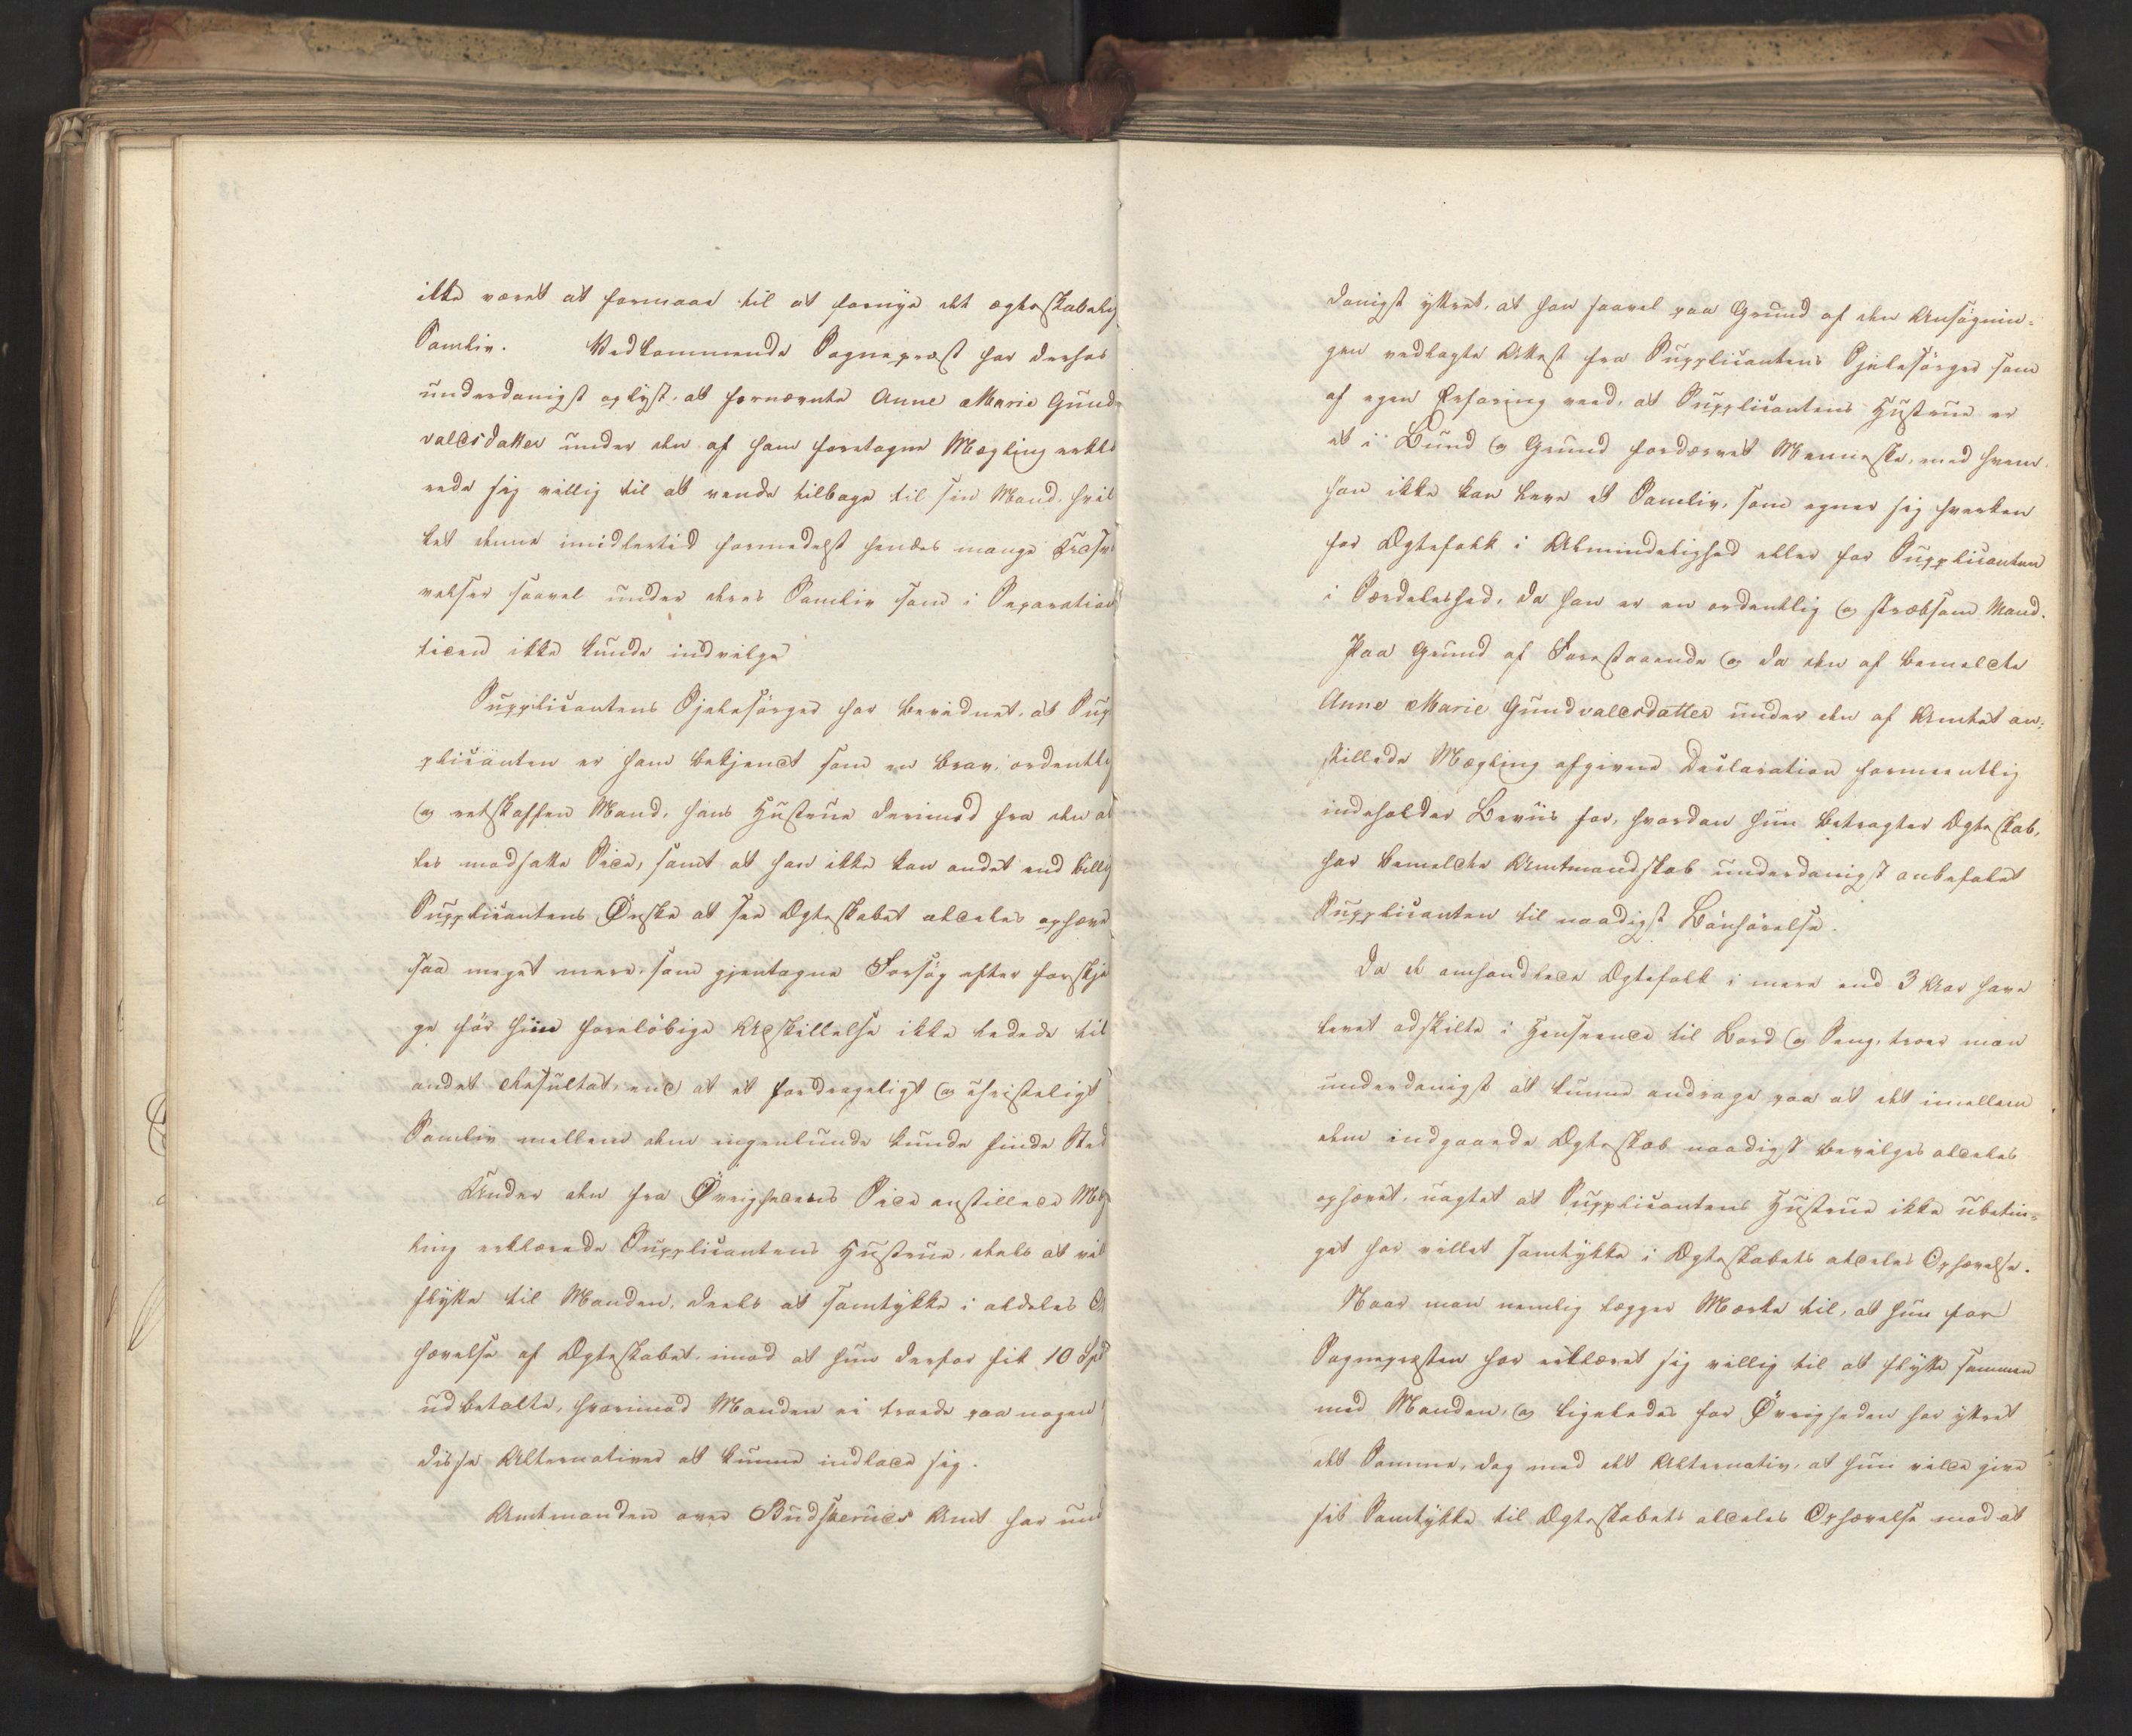 ikke været at formaae til at fornye det ægteskabelig
Samliv. Vedkommende Sognepræst har derhos
underdanigst oplyst, at fornævnte Anne Marie Gund-
valdsdatter under den af ham foretagne Mægling erklæ
rede sig villig til at vende tilbage til sin Mand, hvil
ket denne imidlertid formedelst hendes mange
velser saavel under deres Samliv som i Separations
tiden ikke kunde indvilge
Supplicantens Sjelesörger har bevidnet, at Sup
plicanten er ham bekjendt som en brav, ordentlig
og retskaffen Mand, hans Hustrue derimod fra den al
les modsatte Side, samt at han ikke kan andet end billig
Supplicantens Önske at see Ægteskabet aldeles ophæve
saa meget mere, som gjentagne Forsög efter forskje
ge för hiin foreløbige Adskillelse ikke ledede til
andet Resultat, end at et fordrageligt og christeligt
Samliv mellem dem ingenlunde kunde finde Sted
Under den fra Övrighedens Side anstillede Mæg
ling erklærede Supplicantens Hustrue, deels at vil
flytte til Manden, deels at samtykke i aldeles O
hævelse af Ægteskabet, imod at hun derfor fik 10 Spd
udbetalte, hvorimod Manden ei troede paa nogen
disse Alternativer at kunne indlade sig.
Amtmanden over Budskeruds Amt har und
danigst yttret, at han saavel paa Grund af den Ansögnin-
gen vedlagte Attest fra Supplicantens Sjelesörger som
af egen Erfaring veed, at Supplicantens Hustrue er
et i Bund og Grund fordærvet Menneske, med hvem
han ikke kan leve et Samliv, som egner sig hverken
for Ægtefolk i Almindelighed eller for Supplicanten
i Særdeleshed, da han er en ordentlig og stræbsom Mand.
Paa Grund af Forestaaende og da den af bemeldte
Anne Marie Gundvaldsdatter under den af Amtet an-
stillede Mægling afgivne Declaration formeentlig
indeholder Beviis for, hvordan hun betragter Ægteskab,
har bemeldte Amtmandskab underdanigst anbefalet
Supplicanten til naadigst Bönhörelse.
Da de omhandlede Ægtefolk i mere end 3 Aar have
levet adskilte i Henseende til Bord og Seng, troer man
underdanigst at kunne andrage paa at det imellem
dem indgaaede Ægteskab naadigst bevilges aldeles
ophævet, uagtet at Supplicantens Hustrue ikke ubetin-
get har villet samtykke i Ægteskabets aldeles Ophævelse.
Naar man nemlig lægger Mærke til, at hun for
Sognepræsten har erklæret sig villig til at flytte sammen
med Manden, og ligeledes for Övrigheden har yttret
det Samme, dog med det Alternativ, at hun vilde give
sit Samtykke til Ægteskabets aldeles Ophævelse mod at